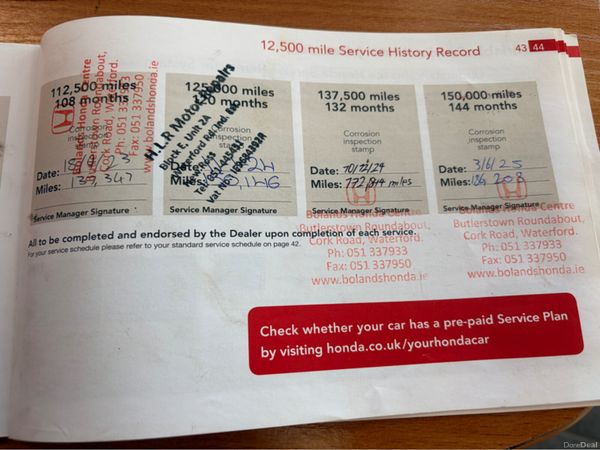 12,500 mile Service History Record
43 44
112,500 miles
108 months
Corrosion
inspection
stamp
Date:
Miles: 137,347
Service Manager Signature
Bolands Honda Centre
Butlerstown Roundabout,
Cork Road, Waterford.
Ph: 051 337933
Fax: 051 337950
www.bolandshonda.ie
miles
months
Corrosion
inspection
stamp
Date:
Miles:
Service Manager Signature
H.L.R Motor Repairs
Block E, Unit 2A
137,500 miles
132 months
Corrosion
inspection
stamp
Date:
Miles: miles
Service Manager Signature
Bolands Honda Centre
Butlerstown Roundabout,
Cork Road, Waterford.
Ph: 051 337933
Fax: 051 337950
www.bolandshonda.ie
150,000 miles
144 months
Corrosion
inspection
stamp
Date: 3/6/25
Miles:
Service Manager Signature
Bolands Honda Centre
Butlerstown Roundabout,
Cork Road, Waterford.
Ph: 051 337933
Fax: 051 337950
www.bolandshonda.ie
All to be completed and endorsed by the Dealer upon completion of each service.
For your service schedule please refer to your standard service schedule on page 42.
Check whether your car has a pre-paid Service Plan
by visiting honda.co.uk/yourhondacar
DoneDeal